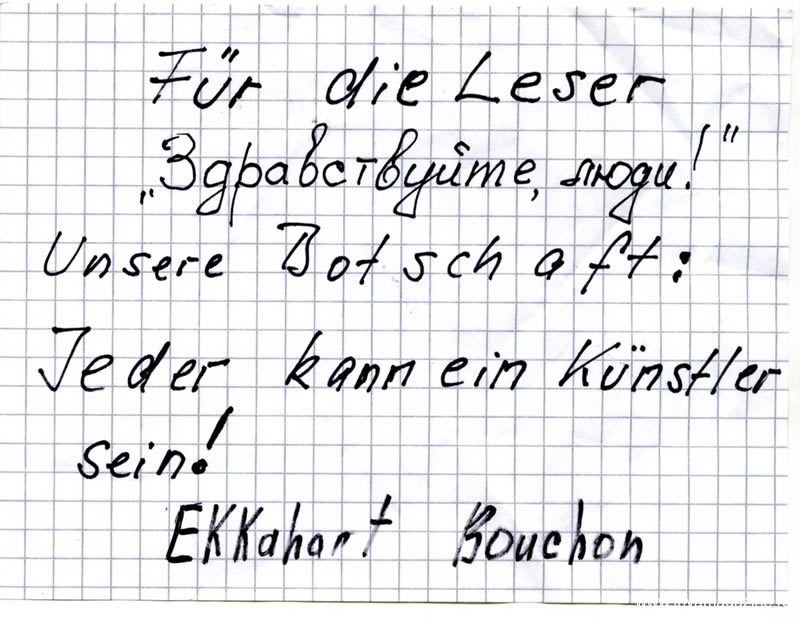 Für die Leser
„Здравствуйте, люди!"
Unsere Botschaft:
Jeder kann ein Künstler
sein!
EKKahart Bouchon